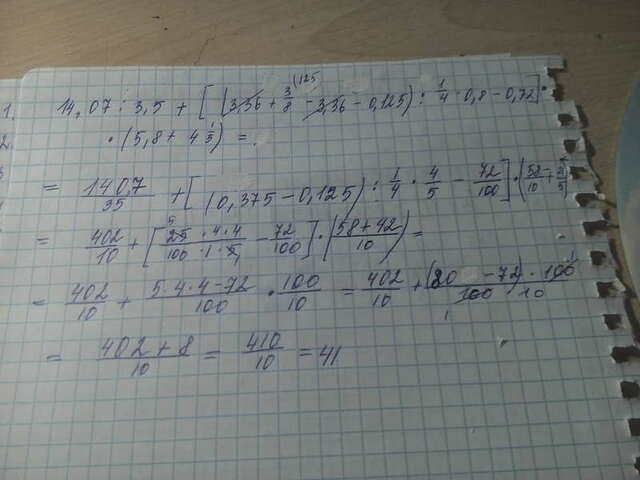 14,07 : 3,5 + [(3,36 + 3/8 - 3,36 - 0,125) : 1/4 · 0,8 - 0,72] ·
· (5,8 + 4 1/5) =
= 140,7/35 + [(0,375 - 0,125) : 1/4 · 4/5 - 72/100] · (58/10 + 21/5)
= 402/10 + [25 · 4 · 4/100 · 1 · 5 - 72/100] · (58 + 42/10) =
= 402/10 + 5 · 4 · 4 - 72/100 · 100/10 = 402/10 + (80 - 72) · 100/100 10
= 402 + 8/10 = 410/10 = 41